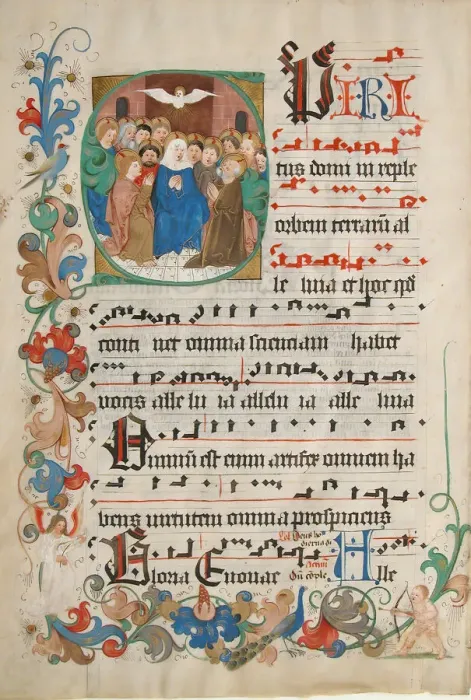 SPIRI
tus domi ni reple
orbem terrarū al
le luia et hoc qd
conti net omnia scienciam habet
vocis alle lu ia allelu ia alle luia
Omniū est enim artifex omnem ha
bens virtutem omnia prospiciens
Gloria Euouae Alle